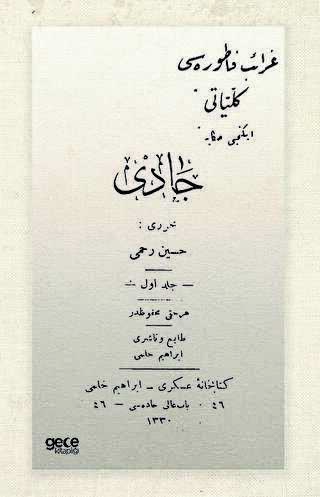 غرائب فاطوره‌سی
كلّیاتی
ایكنجی حكایه
جادی
محرری :
حسین رحمی
— جلد اول —
هر حقی محفوظدر
طابع و ناشری
ابراهیم حلمی
كتابخانهٔ عسكری – ابراهیم حلمی
٤٦ . باب عالی جاده‌سی – ٤٦
١٣٣٠
gece
kitaplığı